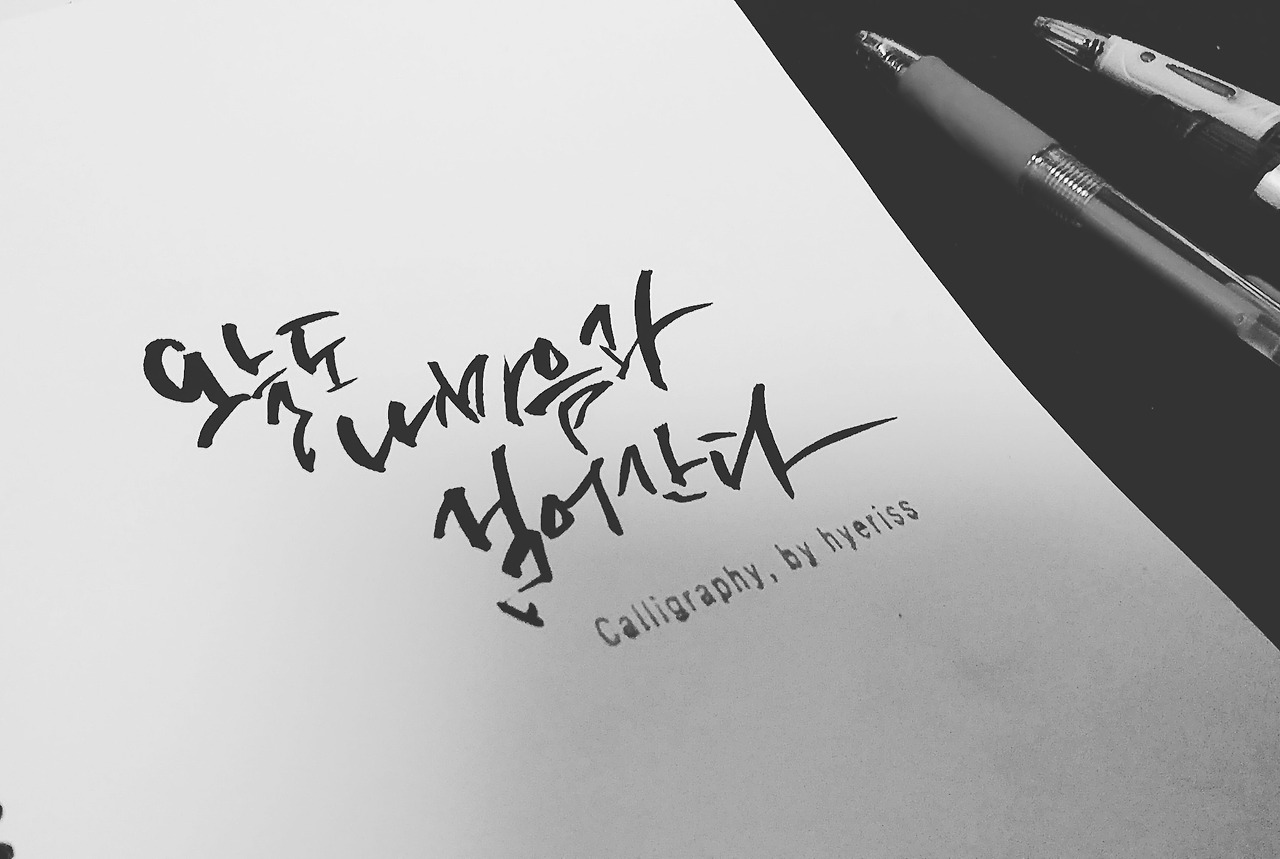 오늘도 내 마음과
걸어간다
Calligraphy, by hyeriss